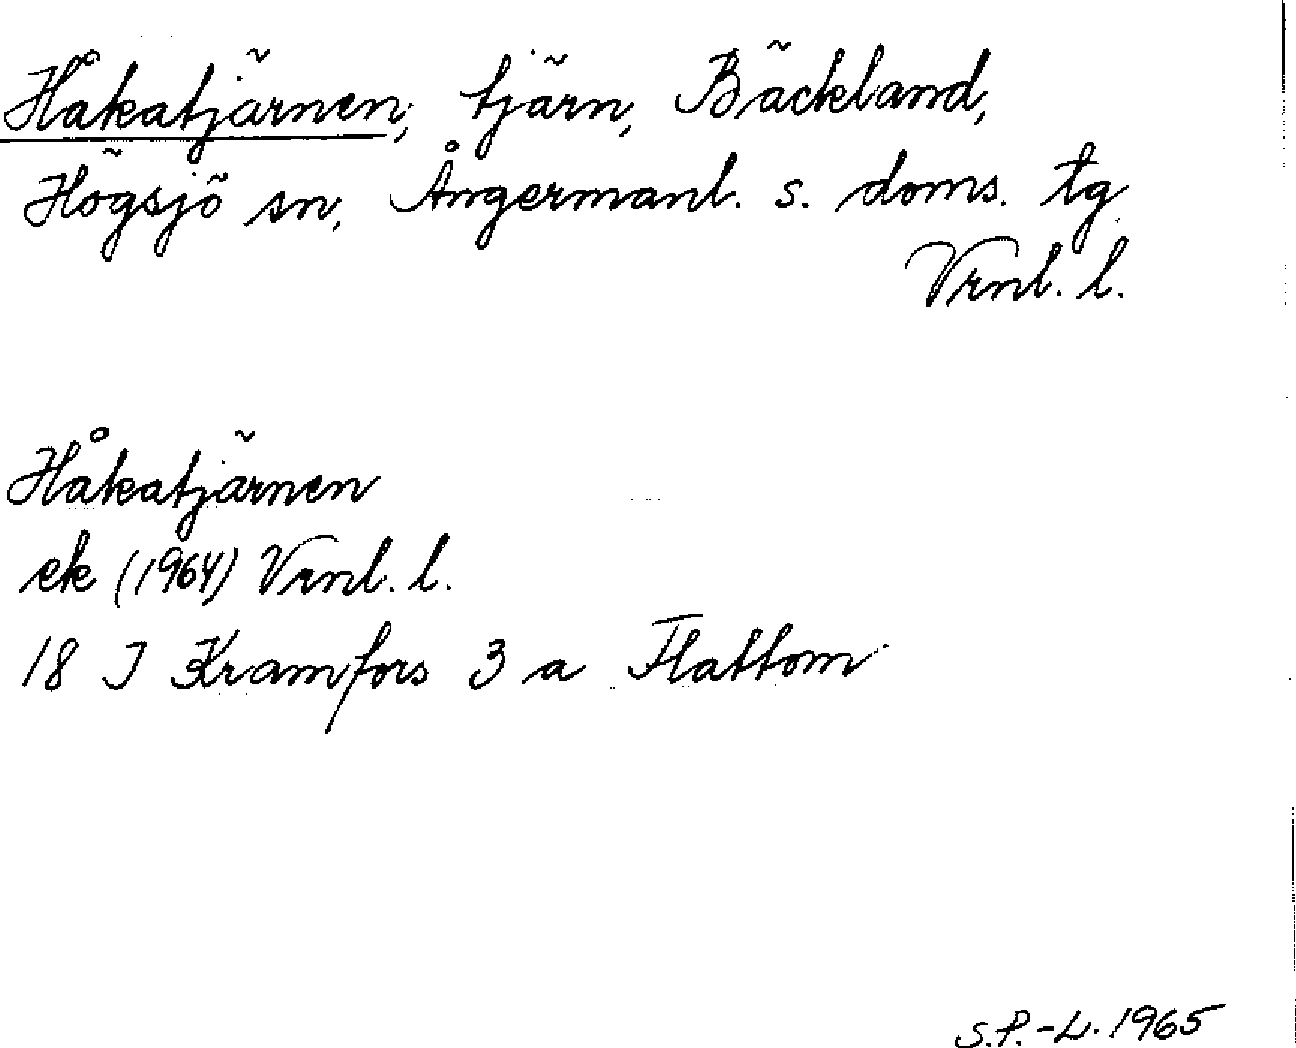 Håkatjärnen, tjärn, Bäckland,
Högsjö sn, Ångermanl. s. doms. tg
Vrnl. l.
Håkatjärnen
ek (1964) Vrnl. l.
18 I Kramfors 3 a Flattom
S.P.-L. 1965